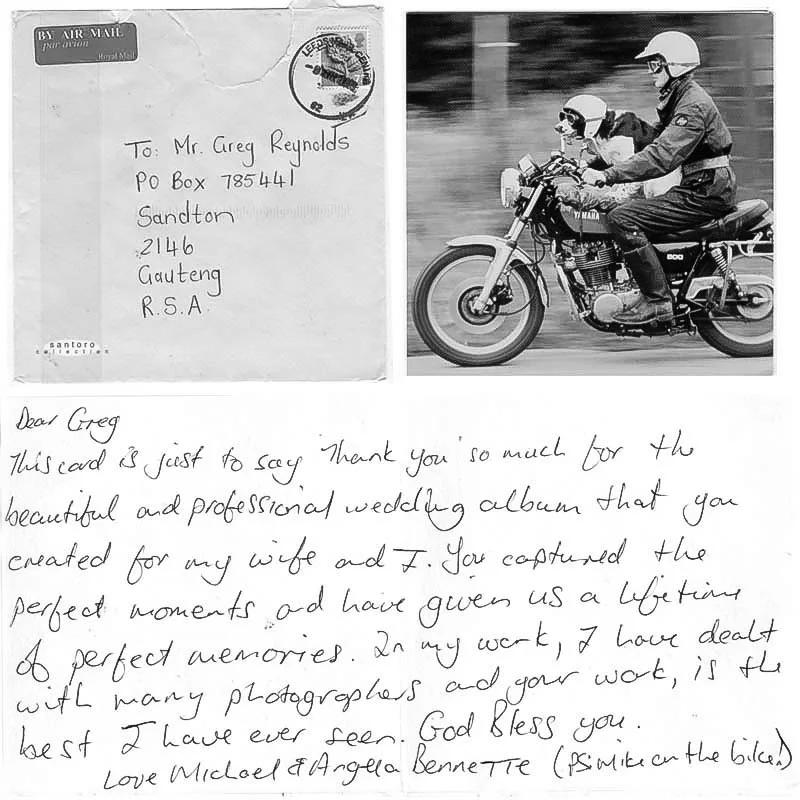 BY AIR MAIL
par avion
Royal Mail
LEEDS
To: Mr. Greg Reynolds
PO Box 785441
Sandton
2146
Gauteng
R.S.A.
santoro
collection
YAMAHA
Dear Greg
This card is just to say 'Thank you' so much for the
beautiful and professional wedding album that you
created for my wife and I. You captured the
perfect moments and have given us a lifetime
of perfect memories. In my work, I have dealt
with many photographers and your work, is the
best I have ever seen. God Bless you.
Love Michael & Angela Bennette (PS: Mike on the bike!)